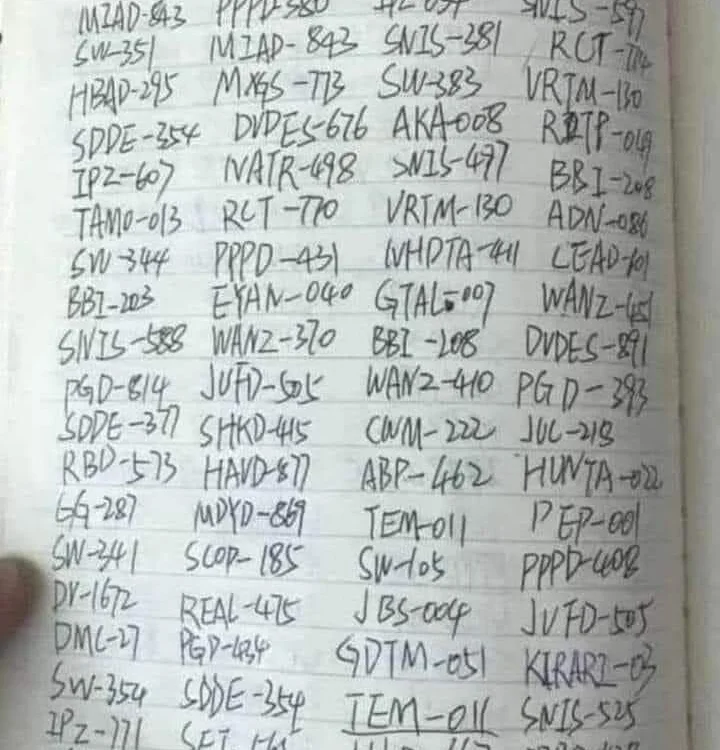 MIAD-843 PPPD-380 SNIS-597
SW-351 MIAD-843 SNIS-381 RCT-
HBAD-295 MXGS-773 SW-383 VRTM-130
SDDE-354 DVDES-676 AKA-008 -049
IPZ-607 NATR-498 SNIS-497 BBI-208
TAMO-013 RCT-770 VRTM-130 ADN-086
SW-344 PPPD-431 NHDTA-411 LEAD-101
BBI-203 EYAN-040 GTAL-007 WANZ-451
SNIS-588 WANZ-370 BBI-208 DVDES-891
PGD-814 JUFD-505 WANZ-410 PGD-393
SDDE-377 SHKD-415 CWM-222 JUC-218
RBD-573 HAVD-877 ABP-462 HUNTA-022
GG-287 MDYD-869 TEM-011 PEP-001
SW-341 SCOP-185 SW-105 PPPD-408
DV-1672 REAL-475 JBS-004 JUFD-505
DMC-27 PGD-434 GDTM-051 KIRARI-03
SW-354 SDDE-354 TEM-011 SNIS-525
IPZ-771 SET-